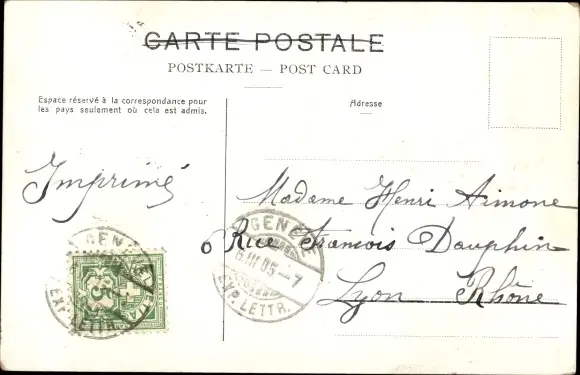 CARTE POSTALE
POSTKARTE — POST CARD
Espace réservé à la correspondance pour
les pays seulement où cela est admis.
Adresse
Imprimé
Madame Henri Aimone
6 Rue François Dauphin
Lyon Rhône
GENÈVE
8.III.05.–7
EXP. LETTR.
GENÈVE
5
EXP. LETTR.